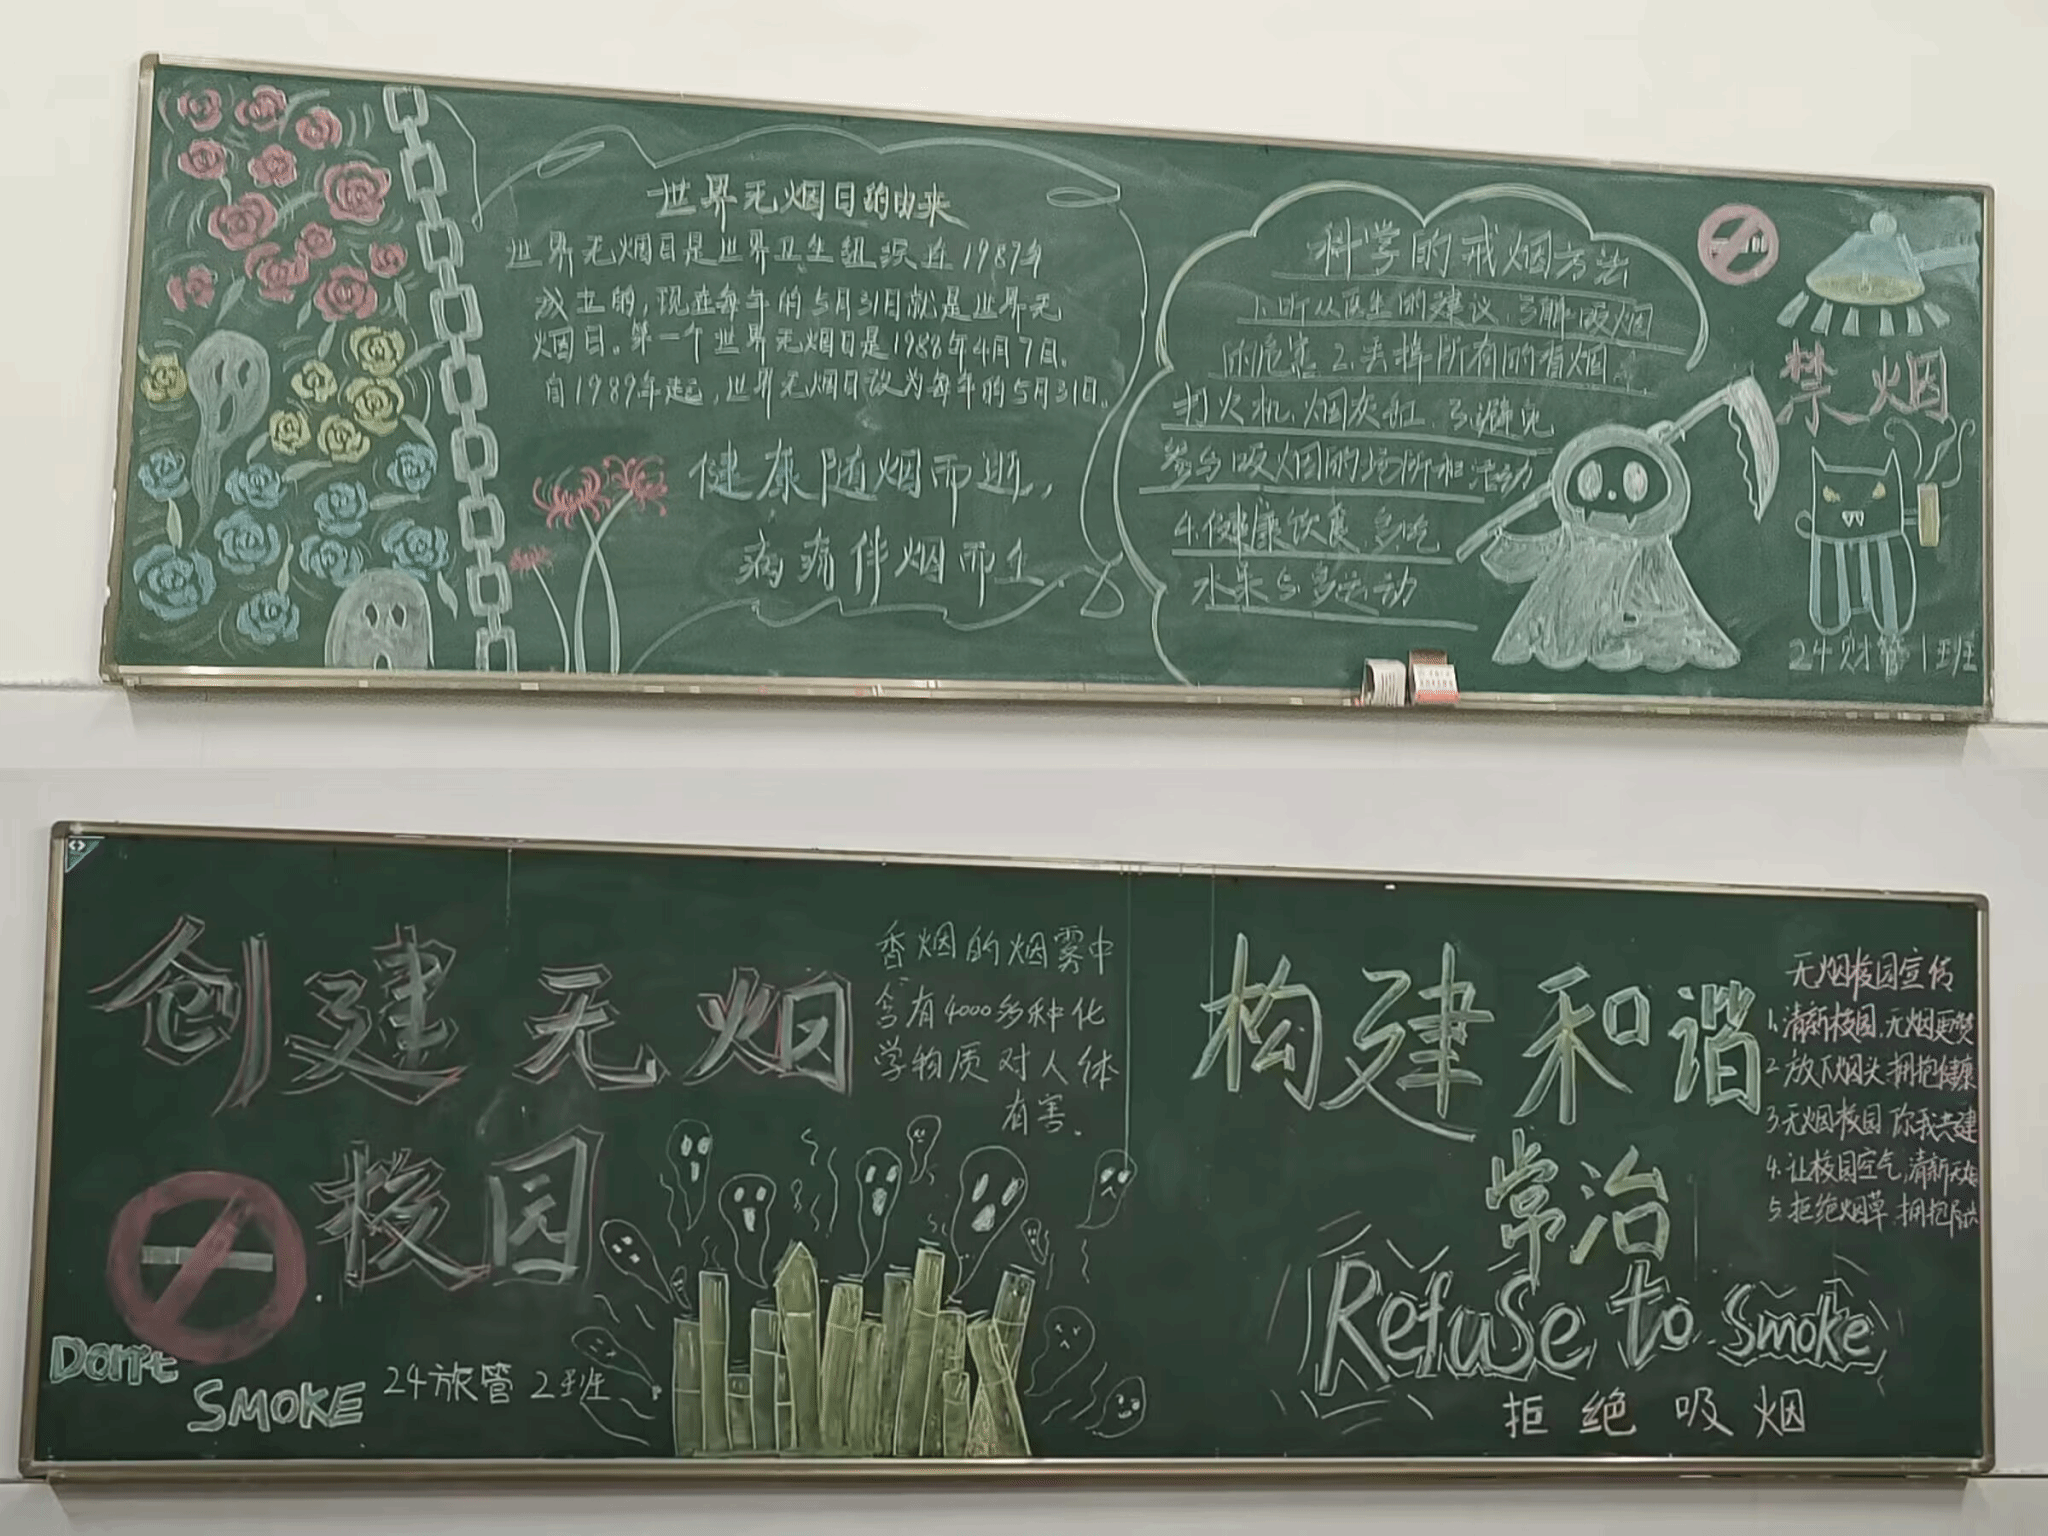 世界无烟日的由来
世界无烟日是世界卫生组织在1987年
成立的,现在每年的5月31日就是世界无
烟日。第一个世界无烟日是1988年4月7日。
自1989年起,世界无烟日改为每年的5月31日。
健康随烟而逝,
病痛伴烟而生
科学的戒烟方法
1.听从医生的建议,了解吸烟
的危害 2.丢掉所有的香烟
打火机、烟灰缸 3.避免
参与吸烟的场所和活动
4.健康饮食,多吃
水果与多运动
禁烟
24财管1班
创建无烟
校园
Don't
SMOKE
24旅管2班
香烟的烟雾中
含有4000多种化
学物质对人体
有害.
构建和谐
常治
Refuse to Smoke
拒绝吸烟
无烟校园宣传
1.清新校园,无烟更赞
2.放下烟头,拥抱健康
3.无烟校园 你我共建
4.让校园空气,清新无
5.拒绝烟草,拥抱